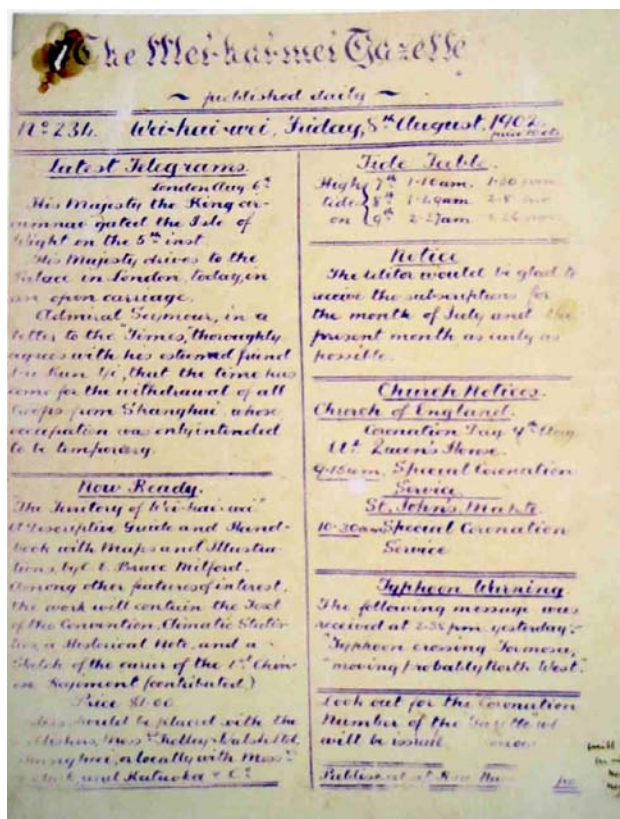 The Wei-hai-wei Gazette
~ published daily ~
No 234. Wei-hai-wei, Friday, 8th August, 1902.
Latest Telegrams.
London Aug 6th
His Majesty the King cir-
cumnavigated the Isle of
Wight on the 5th inst.
His Majesty drives to the
Palace in London, today, in
an open carriage.
Admiral Seymour, in a
letter to the "Times", thoroughly
agrees with his esteemed friend
Kun Yi, that the time has
come for the withdrawal of all
troops from Shanghai, whose
occupation was only intended
to be temporary.
Now Ready.
"The Territory of Wei-hai-wei"
A Descriptive Guide and Hand-
book with Maps and Illustra-
tions, by C. E. Bruce Mitford.
Among other features of interest,
the work will contain the Text
of the Convention, Climatic Statis-
tics, a Historical Note, and a
Sketch of the career of the 1st Chin-
ese Regiment (contributed)
Price $1.00
should be placed with the
Messrs Kelly & Walsh Ltd,
Shanghai, or locally with Messrs
and Kataoka & Co
Tide Table.
High 7th 1-10am.
tide 8th 1-29am 2-8
on 9th 2-27am
Notice
The Editor would be glad to
receive the subscriptions for
the month of July and the
present month as early as
possible.
Church Notices.
Church of England.
Coronation Day 9th Aug
At Queen's House.
9-15am. Special Coronation
Service
St. John's
10-30am Special Coronation
Service
Typhoon Warning.
The following message was
received at pm yesterday:-
"Typhoon crossing Formosa,
"moving probably North West".
Look out for the Coronation
Number of the "Gazette"
will be issue
Published at